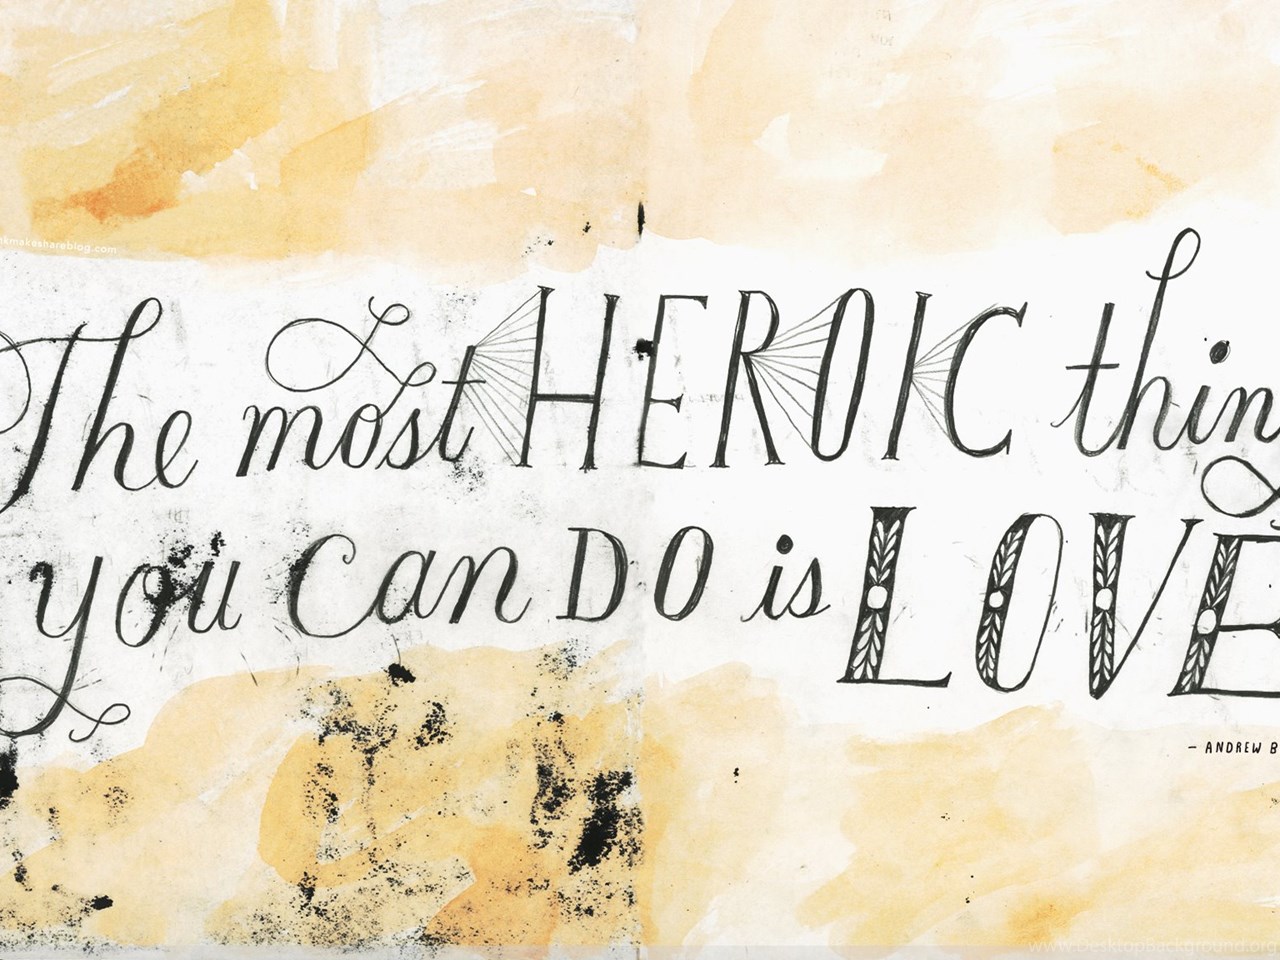 The most HEROIC thin
you Can DO is LOVE
- ANDREW B
kmakeshareblog.com
www.DesktopBackground.org